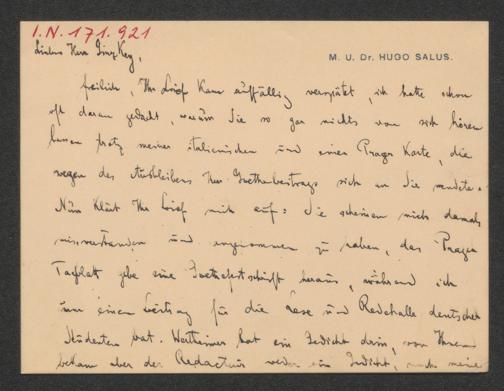 I.N. 171.921
M. U. Dr. HUGO SALUS.
Lieber Herr Ginzkey,
freilich, Ihr Brief kam auffällig verspätet, ich hatte schon
oft daran gedacht, warum Sie so gar nichts von sich hören
lassen trotz meiner italienischen und einer Prager Karte, die
wegen des Ausbleibens Ihres Goethebeitrags sich an Sie wendete.
Nun klärt Ihr Brief mich auf: Sie scheinen mich damals
missverstanden und angenommen zu haben, das Prager
Tagblatt gebe eine Goethefestschrift heraus, während ich
um einen Beitrag für die Lese und Redehalle deutscher
Studenten bat. Wertheimer hat ein Gedicht drin, von Ihnen
bekam aber der Redacteur weder ein Gedicht, noch meine